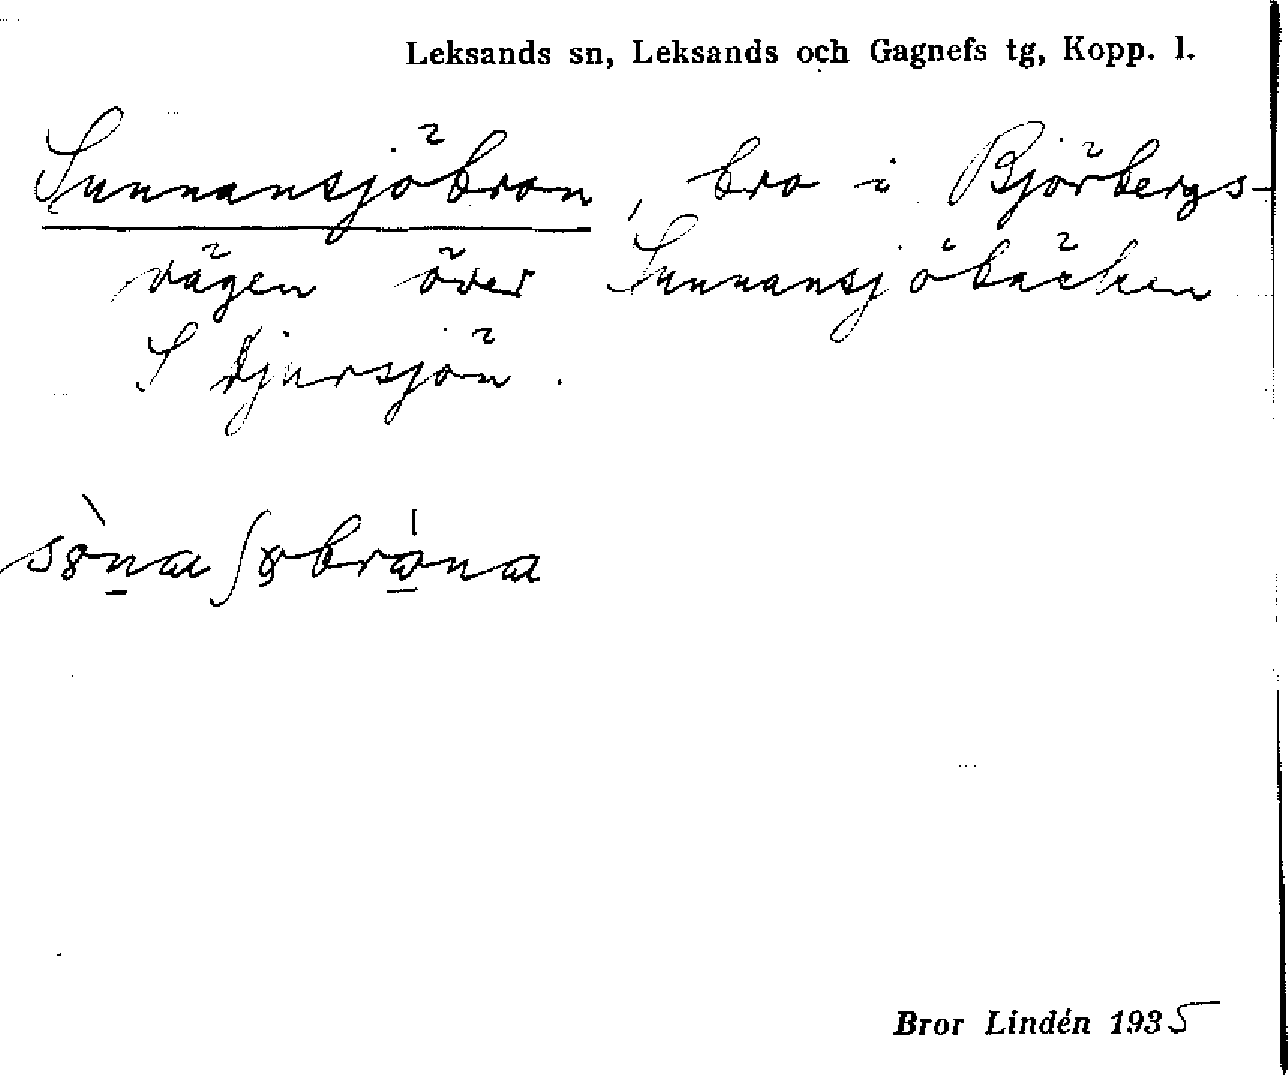 Leksands sn, Leksands och Gagnefs tg, Kopp. l.
Sunnansjöbron, bro i Björbergs-
vägen över Sunnansjöbäcken
S Djursjön.
Bror Lindén 1935